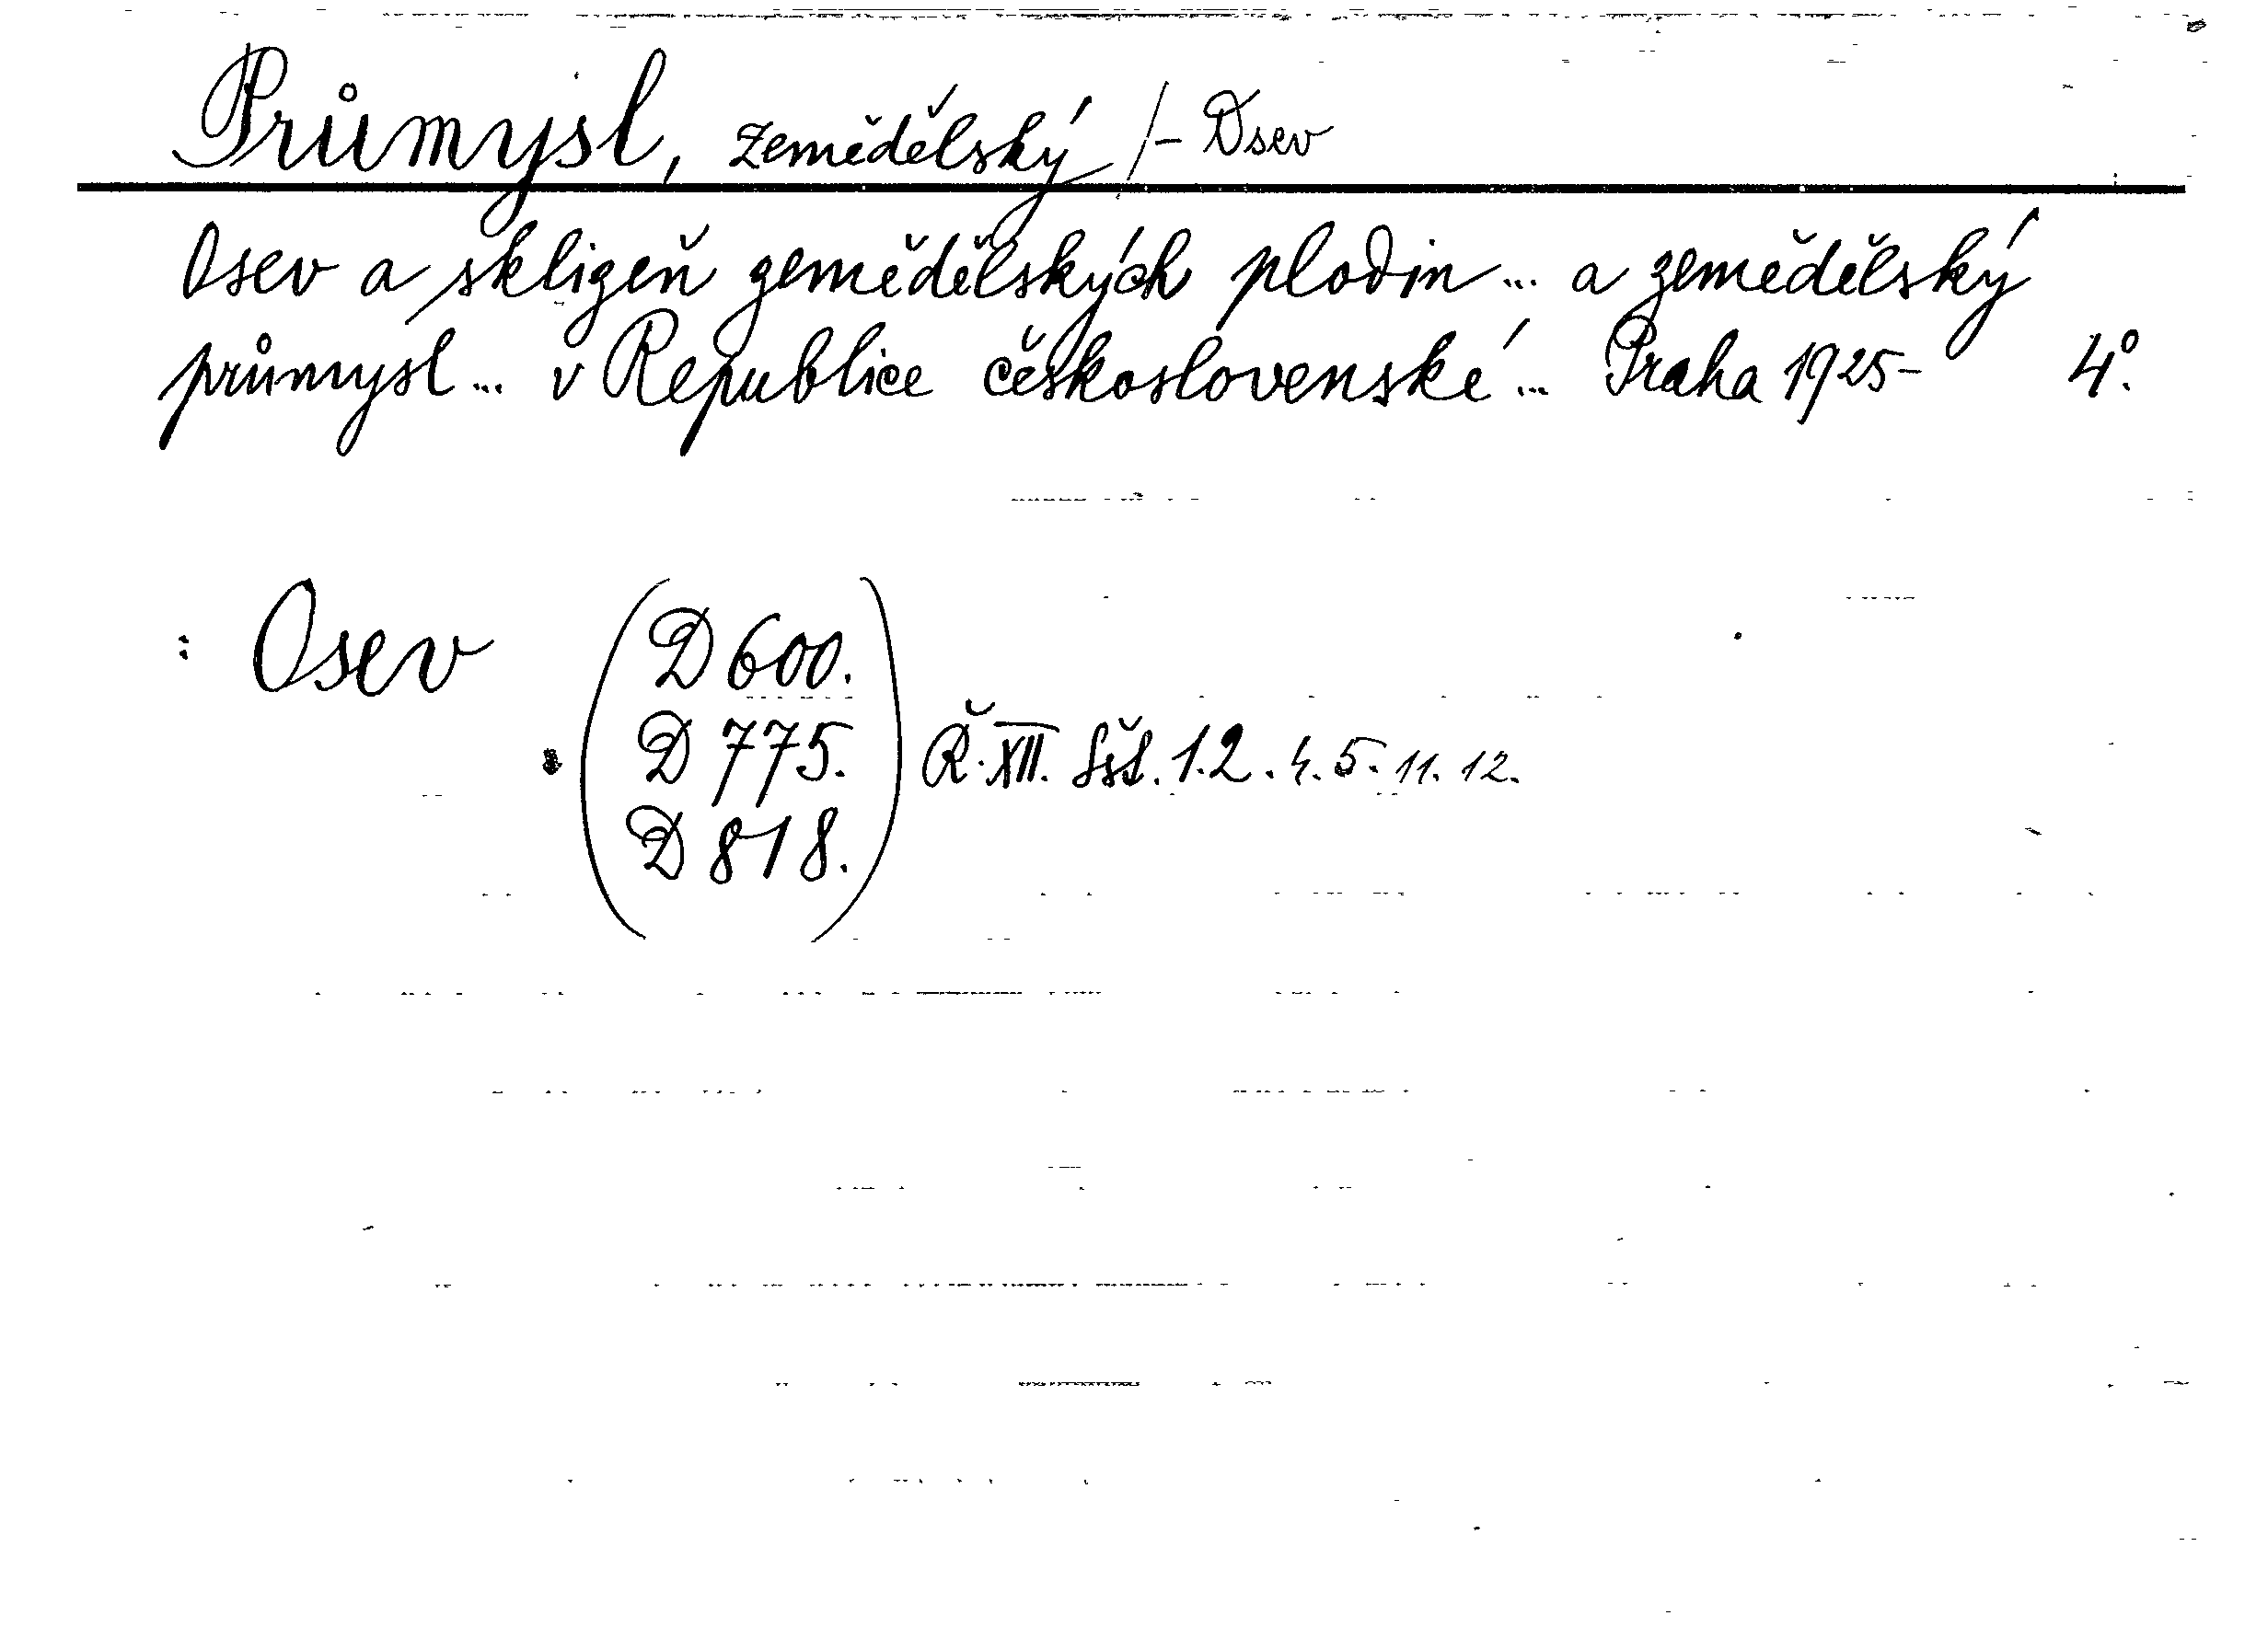 Průmysl, zemědělský /- Osev
Osev a sklizeň zemědělských plodin ... a zemědělský
průmysl ... v Republice československé ... Praha 1925- 4°.
: Osev
(D 600.
D 775.
D 818.)
Ř. XII. Sšt. 1. 2. 4. 5. 11. 12.